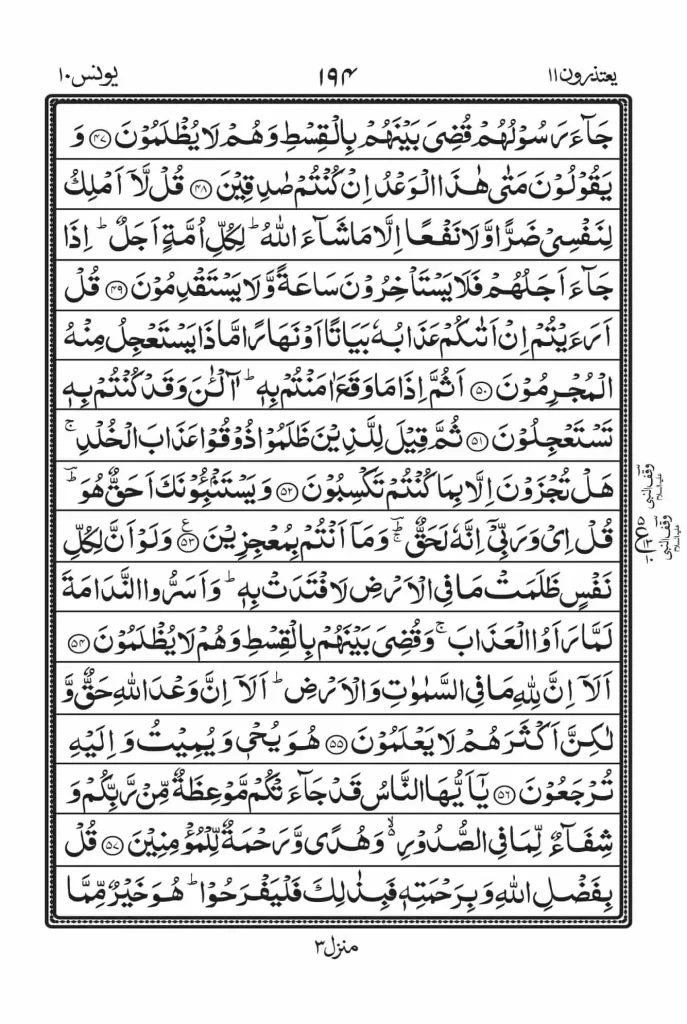 یعتذرون ۱۱ ۱۹۴ یونس ۱۰
جَآءَ رَسُوۡلُهُمۡ قُضِىَ بَيۡنَهُمۡ بِالۡقِسۡطِ وَهُمۡ لَا يُظۡلَمُوۡنَ ﴿۴۷﴾ وَ
يَقُوۡلُوۡنَ مَتٰى هٰذَا الۡوَعۡدُ اِنۡ كُنۡتُمۡ صٰدِقِيۡنَ ﴿۴۸﴾ قُلْ لَّاۤ اَمۡلِكُ
لِنَفۡسِىۡ ضَرًّا وَّلَا نَفۡعًا اِلَّا مَا شَآءَ اللّٰهُ ؕ لِكُلِّ اُمَّةٍ اَجَلٌ ؕ اِذَا
جَآءَ اَجَلُهُمۡ فَلَا يَسۡتَاۡخِرُوۡنَ سَاعَةً وَّلَا يَسۡتَقۡدِمُوۡنَ ﴿۴۹﴾ قُلۡ
اَرَءَيۡتُمۡ اِنۡ اَتٰٮكُمۡ عَذَابُهٗ بَيَاتًا اَوۡ نَهَارًا مَّاذَا يَسۡتَعۡجِلُ مِنۡهُ
الۡمُجۡرِمُوۡنَ ﴿۵۰﴾ اَثُمَّ اِذَا مَا وَقَعَ اٰمَنۡتُمۡ بِهٖ ؕ آٰلۡـــٰٔنَ وَقَدۡ كُنۡتُمۡ بِهٖ
تَسۡتَعۡجِلُوۡنَ ﴿۵۱﴾ ثُمَّ قِيۡلَ لِلَّذِيۡنَ ظَلَمُوۡا ذُوۡقُوۡا عَذَابَ الۡخُلۡدِ ۚ
هَلۡ تُجۡزَوۡنَ اِلَّا بِمَا كُنۡتُمۡ تَكۡسِبُوۡنَ ﴿۵۲﴾ وَيَسۡتَنۡۢبِـــُٔوۡنَكَ اَحَقٌّ هُوَ ؕ
قُلۡ اِىۡ وَرَبِّىۡۤ اِنَّهٗ لَحَقٌّ ؕۚ وَمَاۤ اَنۡتُمۡ بِمُعۡجِزِيۡنَ ﴿۵۳﴾ وَلَوۡ اَنَّ لِكُلِّ
نَفۡسٍ ظَلَمَتۡ مَا فِى الۡاَرۡضِ لَافۡتَدَتۡ بِهٖ ؕ وَاَسَرُّوا النَّدَامَةَ
لَمَّا رَاَوُا الۡعَذَابَ ۚ وَقُضِىَ بَيۡنَهُمۡ بِالۡقِسۡطِ وَهُمۡ لَا يُظۡلَمُوۡنَ ﴿۵۴﴾
اَلَاۤ اِنَّ لِلّٰهِ مَا فِى السَّمٰوٰتِ وَالۡاَرۡضِ ؕ اَلَاۤ اِنَّ وَعۡدَ اللّٰهِ حَقٌّ وَّ
لٰـكِنَّ اَكۡثَرَهُمۡ لَا يَعۡلَمُوۡنَ ﴿۵۵﴾ هُوَ يُحۡىٖ وَيُمِيۡتُ وَاِلَيۡهِ
تُرۡجَعُوۡنَ ﴿۵۶﴾ يٰۤاَيُّهَا النَّاسُ قَدۡ جَآءَتۡكُمۡ مَّوۡعِظَةٌ مِّنۡ رَّبِّكُمۡ وَ
شِفَآءٌ لِّمَا فِى الصُّدُوۡرِ ۙ وَهُدًى وَّرَحۡمَةٌ لِّلۡمُؤۡمِنِيۡنَ ﴿۵۷﴾ قُلۡ
بِفَضۡلِ اللّٰهِ وَبِرَحۡمَتِهٖ فَبِذٰلِكَ فَلۡيَـفۡرَحُوۡا ؕ هُوَ خَيۡرٌ مِّمَّا
وقف النبی علیہ السلام
وقف النبی علیہ السلام
منزل ۳